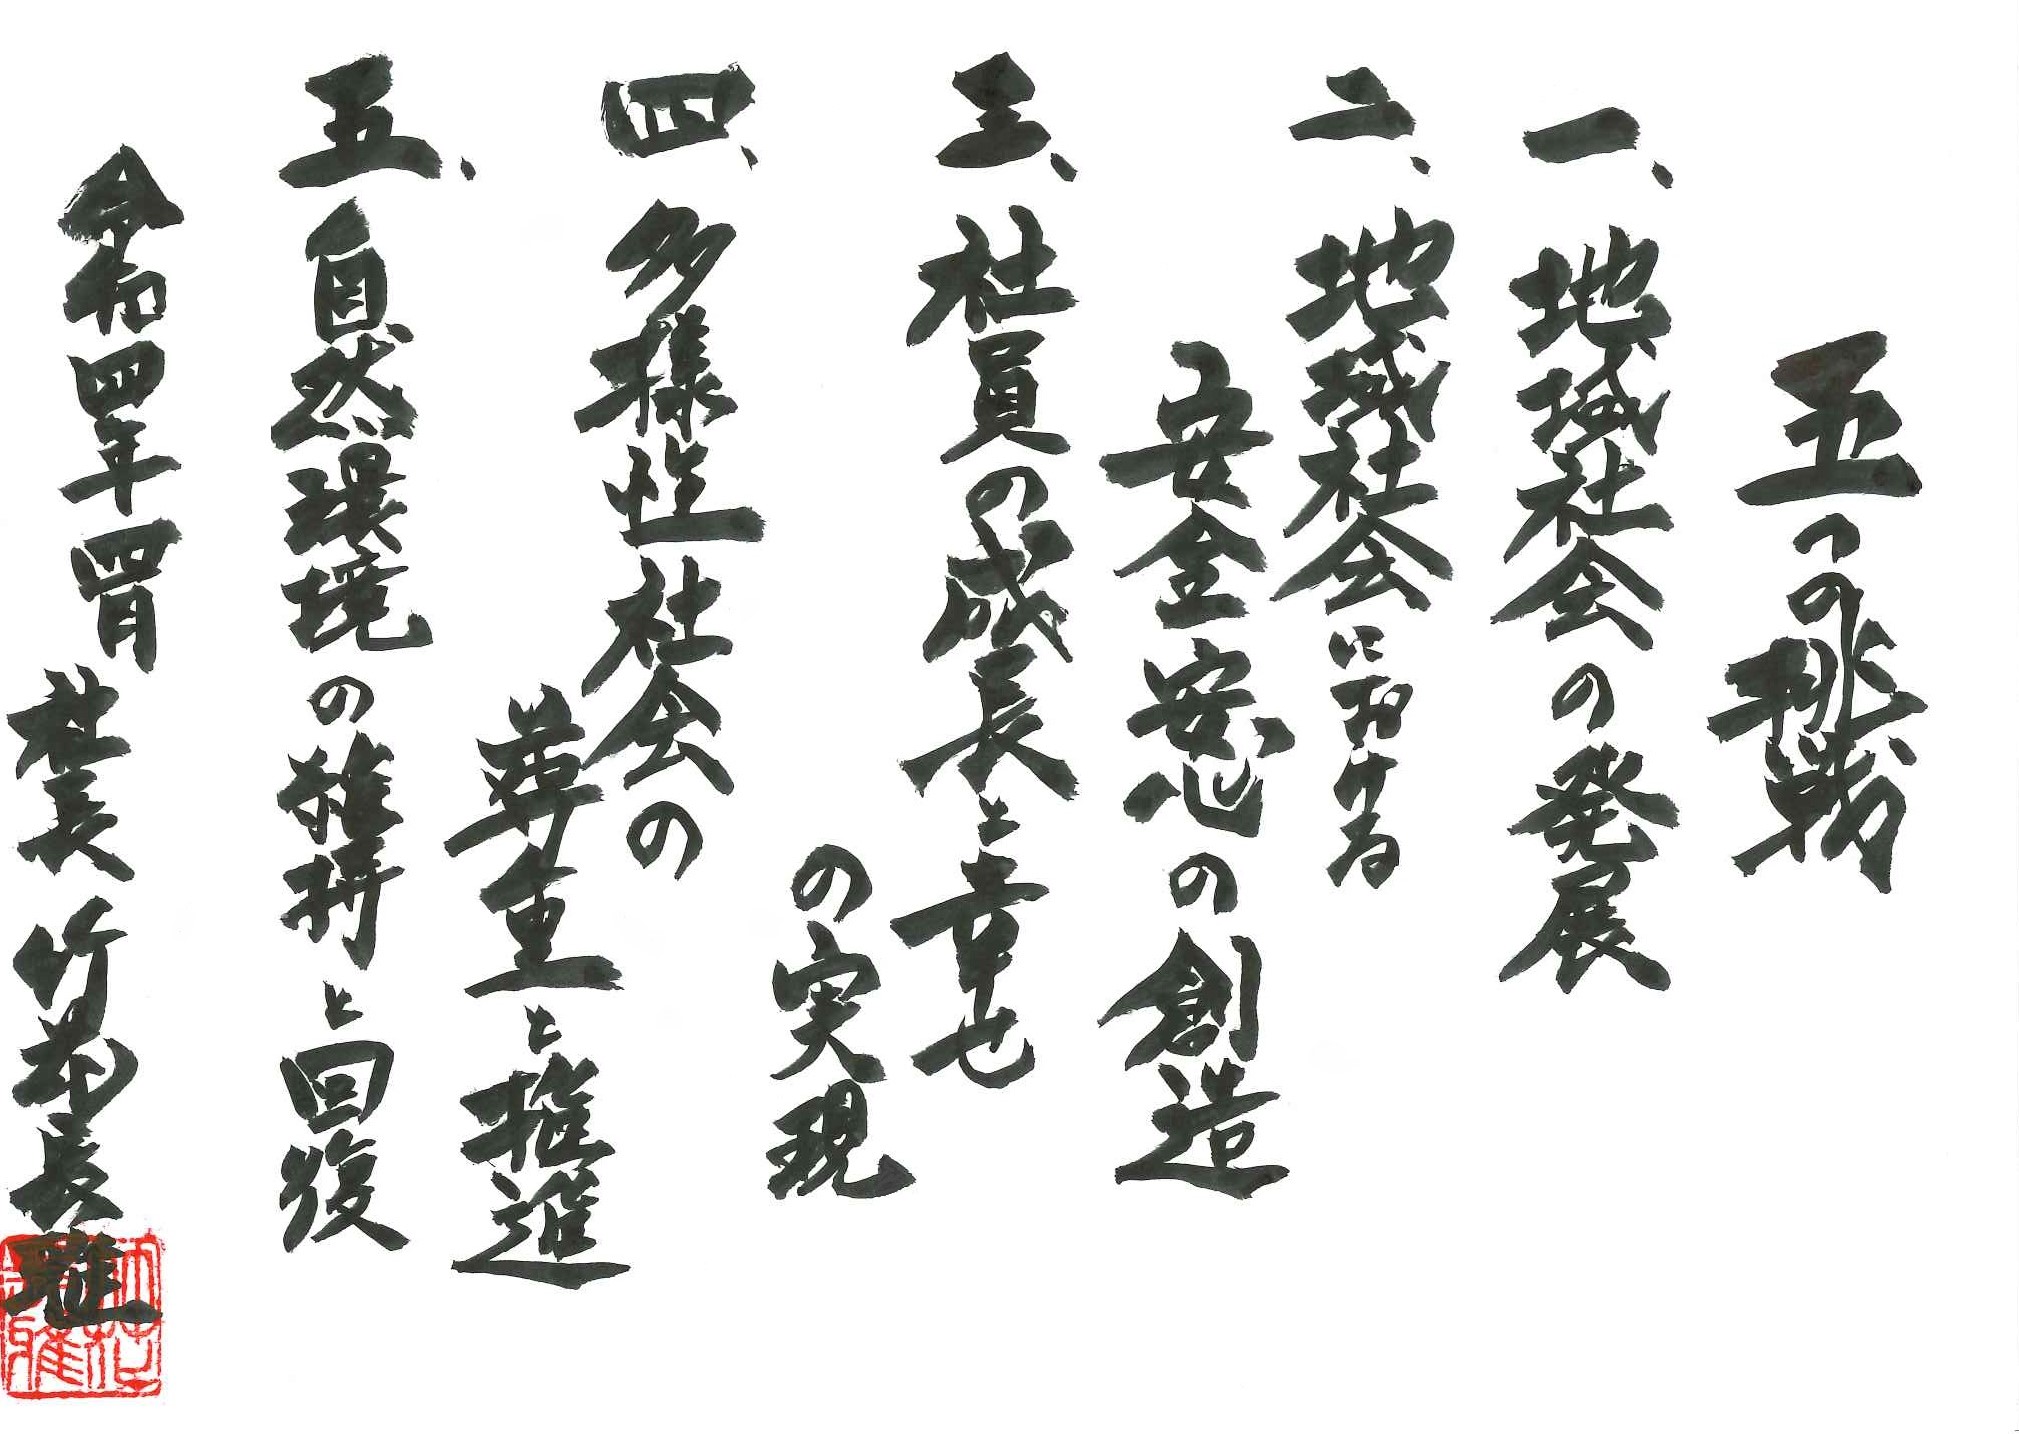 五つの挑戦
一、地域社会の発展
二、地域社会における
安全安心の創造
三、社員の成長と幸せ
の実現
四、多様性社会の
尊重と推進
五、自然環境の維持と回復
令和四年四月
社長 竹本長